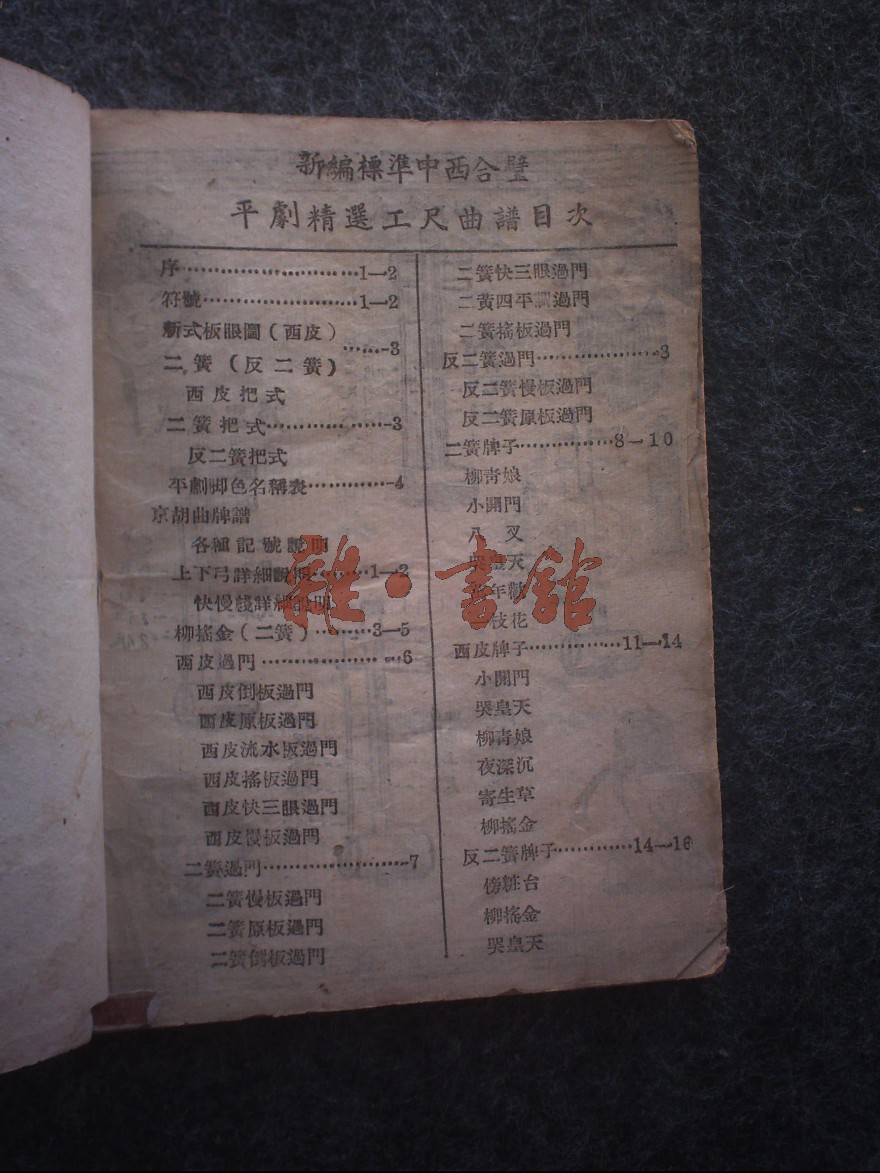 新編標準中西合璧
平劇精選工尺曲譜目次
序⋯⋯⋯⋯⋯⋯⋯⋯⋯1—2
符號⋯⋯⋯⋯⋯⋯⋯⋯1—2
新式板眼圖(西皮)
二簧(反二簧)⋯⋯-3
西皮把式
二簧把式⋯⋯⋯⋯⋯-3
反二簧把式
平劇脚色名稱表⋯⋯⋯⋯-4
京胡曲牌譜
各種記號說明
上下弓詳細說明⋯⋯⋯1—2
快慢綫詳細說明
柳搖金(二簧)⋯⋯⋯3—5
西皮過門⋯⋯⋯⋯⋯⋯6
西皮倒板過門
西皮原板過門
西皮流水板過門
西皮搖板過門
西皮快三眼過門
西皮慢板過門
二簧過門⋯⋯⋯⋯⋯⋯-7
二簧慢板過門
二簧原板過門
二簧倒板過門
二簧快三眼過門
二黄四平調過門
二簧搖板過門
反二簧過門⋯⋯⋯⋯⋯-3
反二簧慢板過門
反二簧原板過門
二簧牌子⋯⋯⋯⋯⋯8—10
柳青娘
小開門
八叉
哭皇天
年歡
枝花
西皮牌子⋯⋯⋯⋯⋯11—14
小開門
哭皇天
柳青娘
夜深沉
寄生草
柳搖金
反二簧牌子⋯⋯⋯⋯14—16
傍粧台
柳搖金
哭皇天
雜·書館